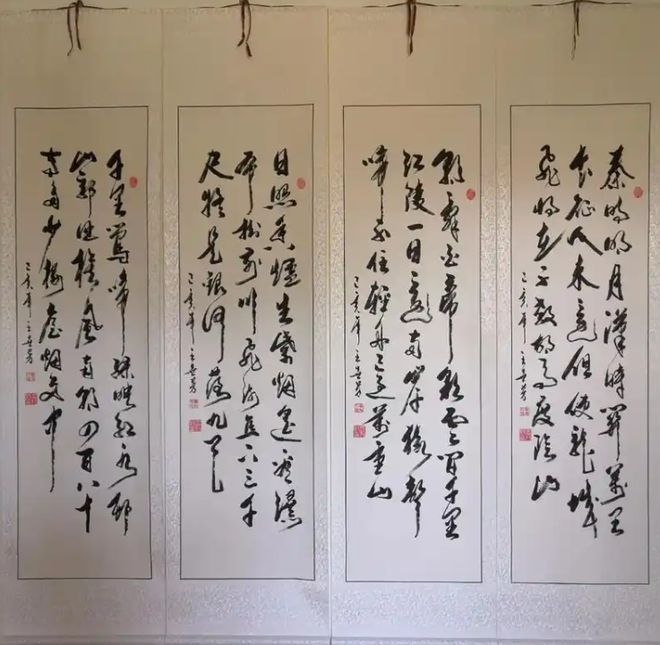 秦時明月漢時関萬里
长征人未還但使龍城
飛将在不教胡馬度陰山
己亥年王
朝辞白帝彩雲间千里
江陵一日還両岸猿聲
啼不住輕舟已過萬重山
己亥年王
日照香爐生紫烟遥看瀑
布掛前川飛流直下三千
尺疑是銀河落九天
己亥年王
千里鶯啼绿映红水邨
山郭酒旗風南朝四百八十
寺多少樓臺烟雨中
己亥年王